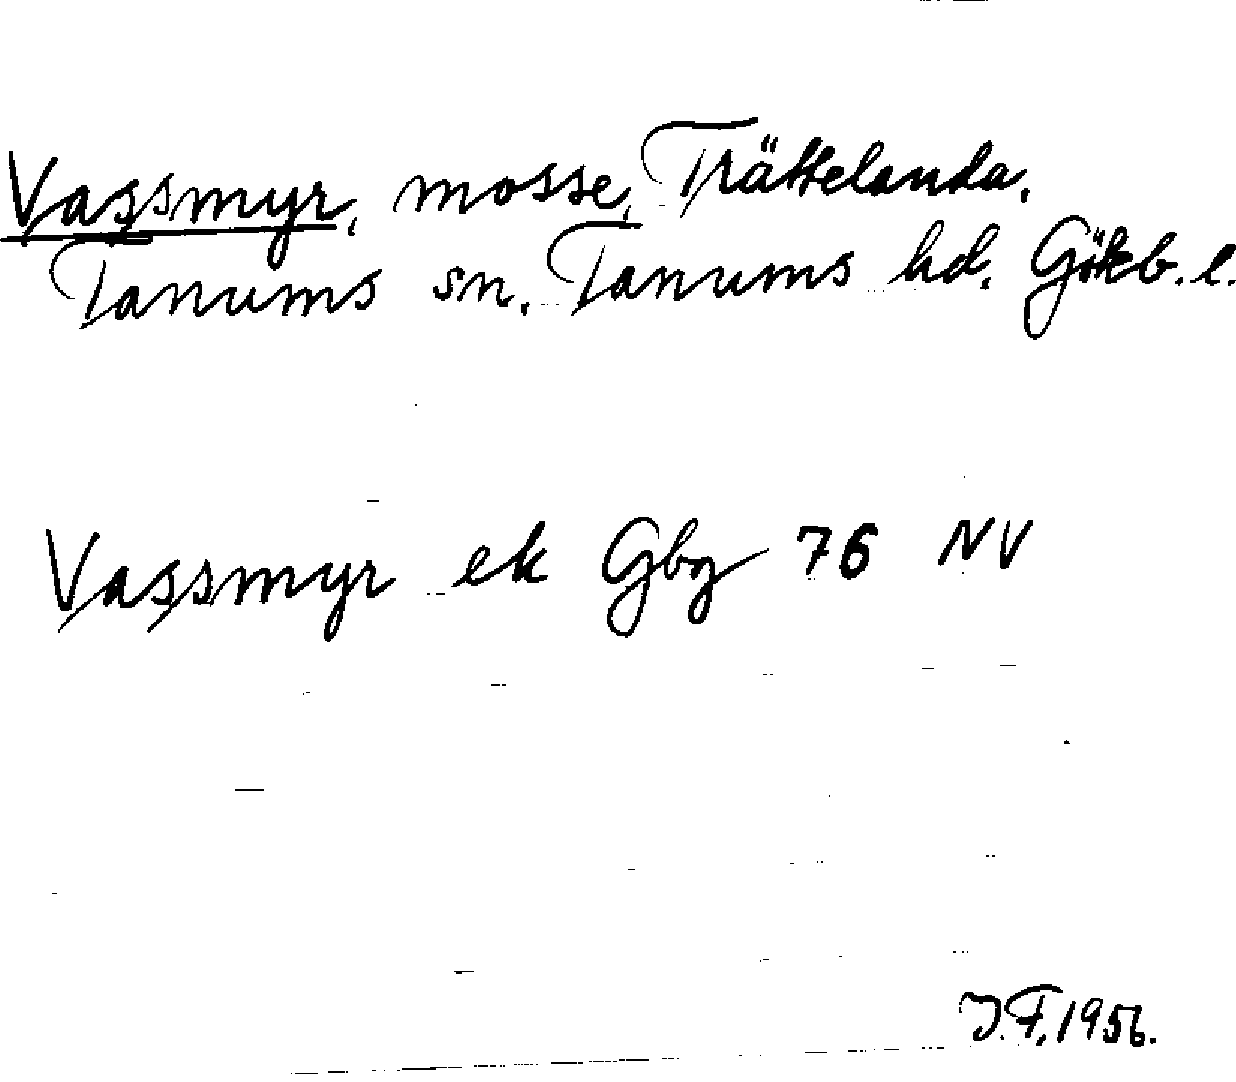 Vassmyr, mosse, Trättelanda,
Tanums sn. Tanums hd. Göteb. l.
Vassmyr ek Gbg 76 NV
J.F. 1956.